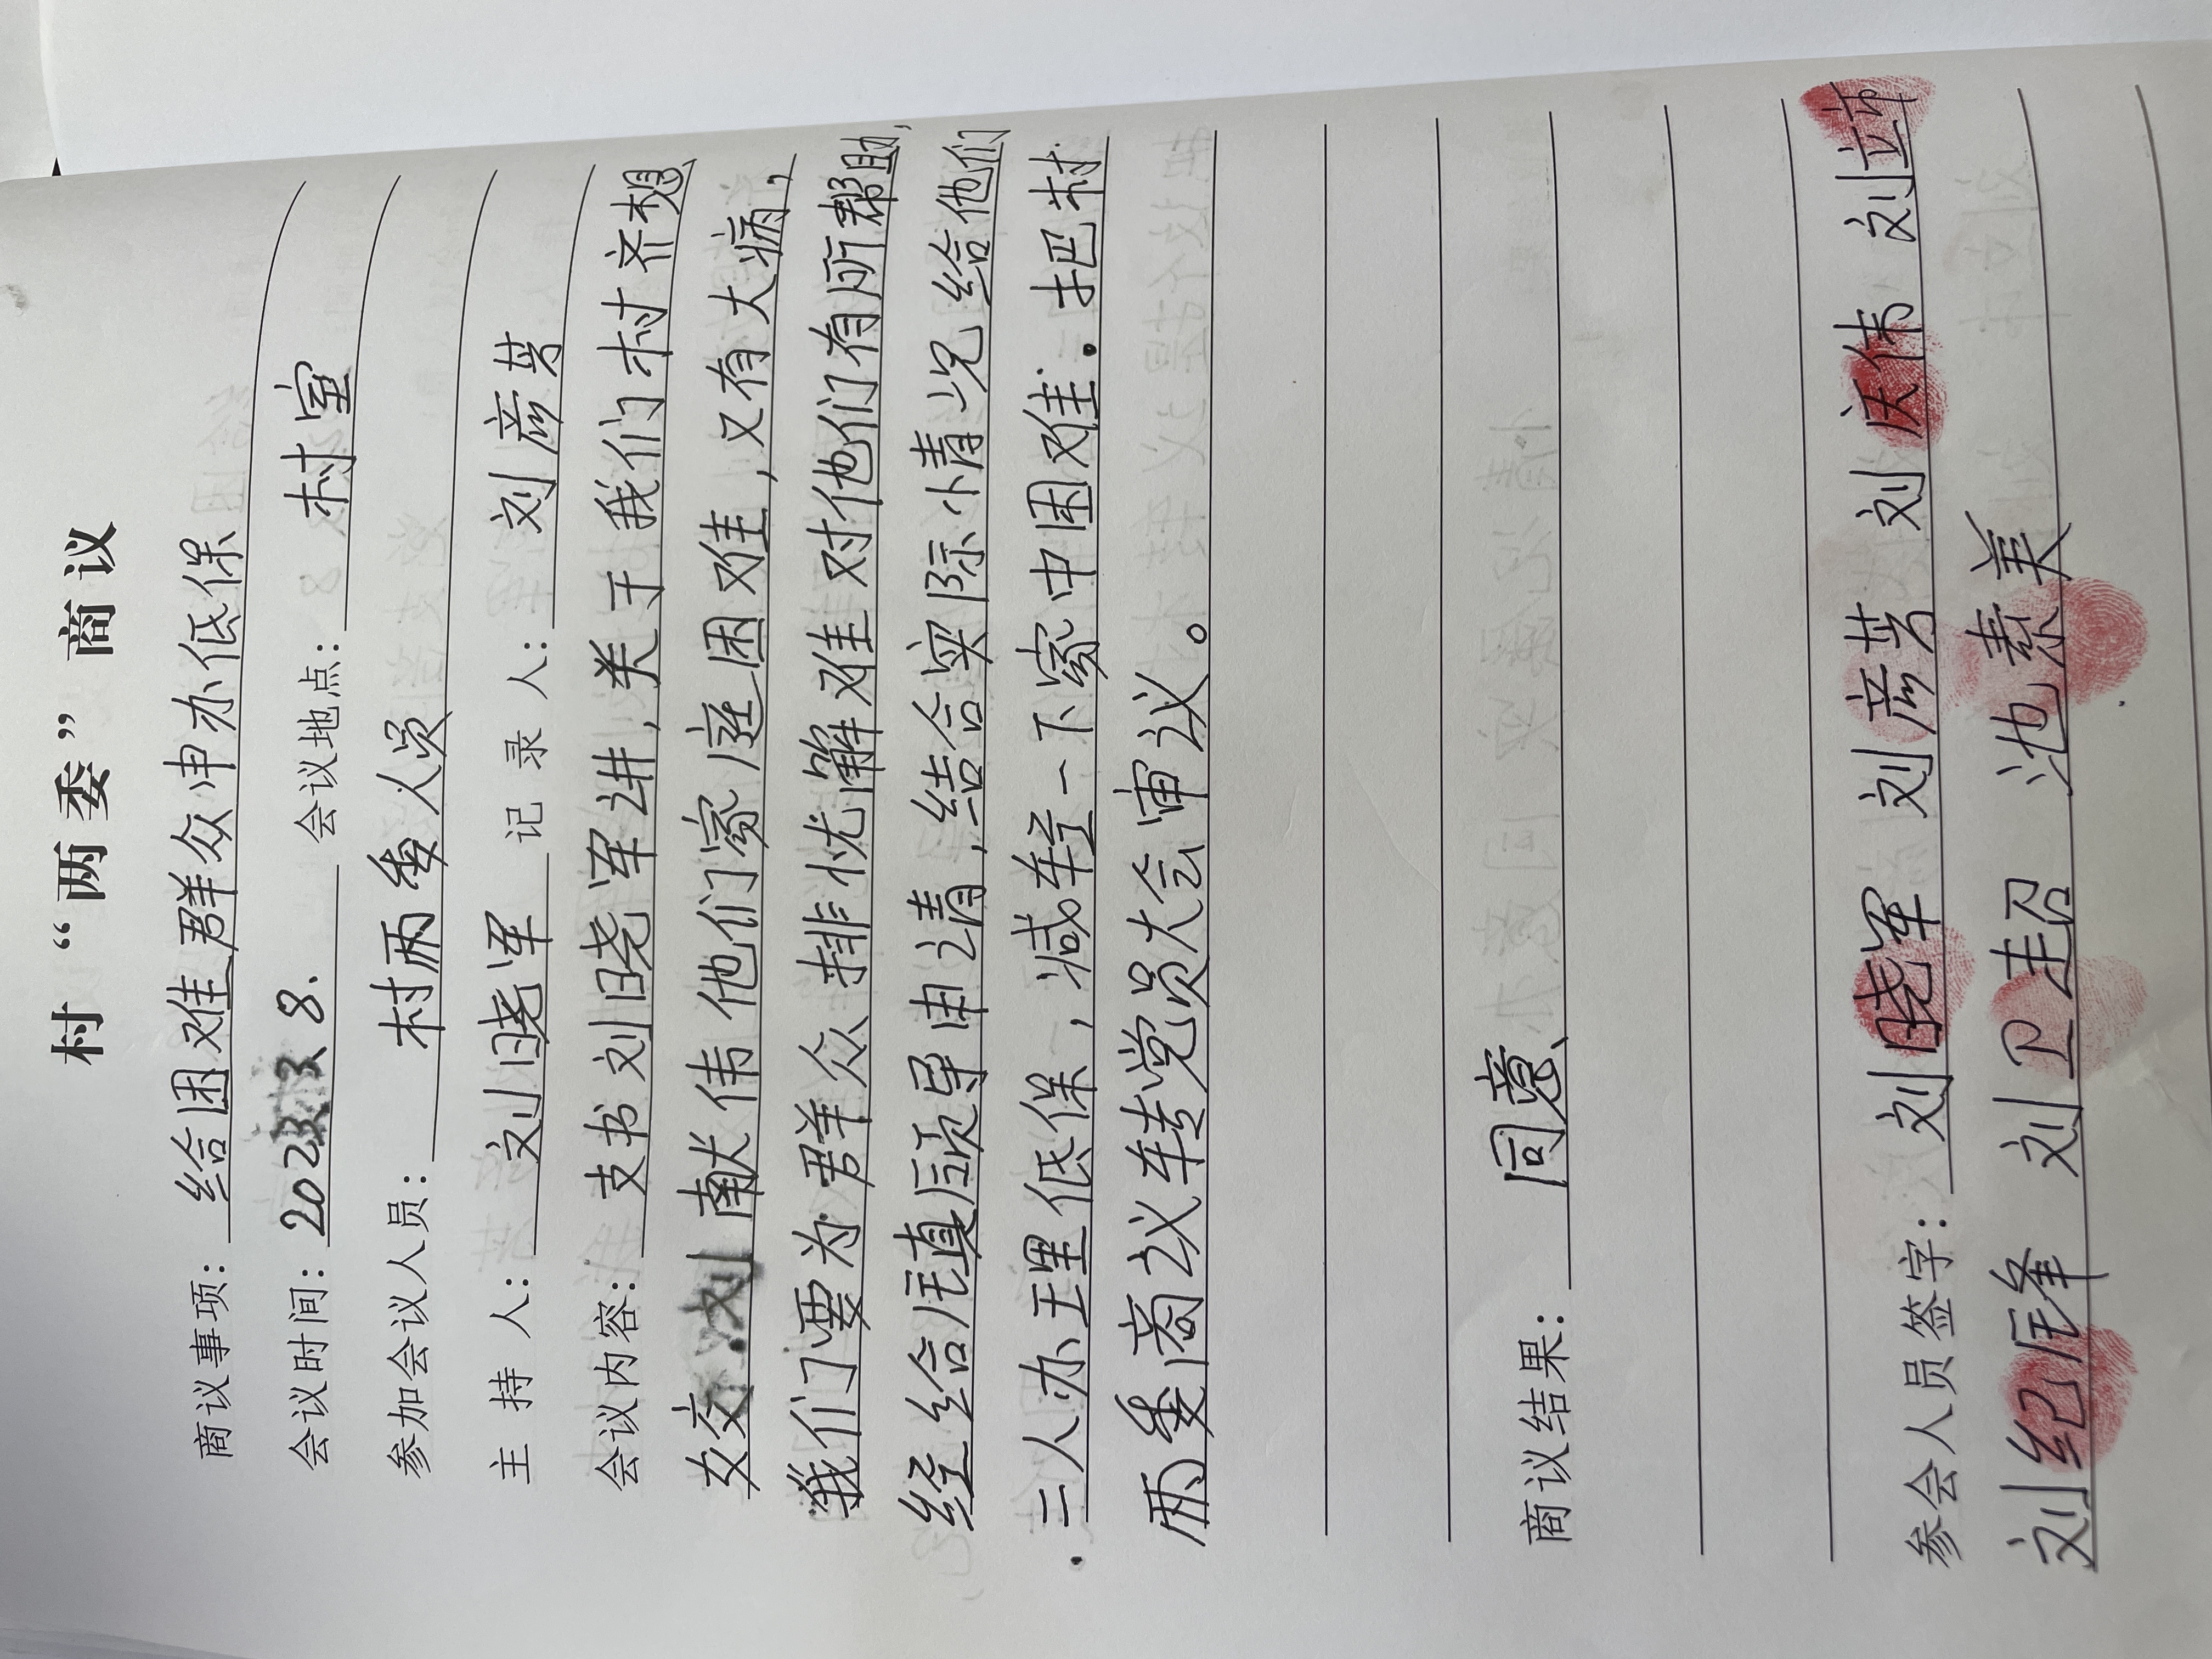 村“两委”商议
商议事项: 给困难群众申办低保
会议时间: 2023.3.8. 会议地点: 村室
参加会议人员: 村两委人员
主持人: 刘晓军 记录人: 刘彦芳
会议内容: 支书刘晓军讲,关于我们村齐想
姣.刘献伟他们家庭困难,又有大病,
我们要为群众排忧解难对他们有所帮助,
经给镇领导申请,结合实际情况给他们
二人办理低保,减轻一下家中困难。把村
两委商议转党员大会审议。
商议结果: 同意
参会人员签字: 刘晓军 刘彦芳 刘庆伟 刘立市
刘纪锋 刘卫超 池素美